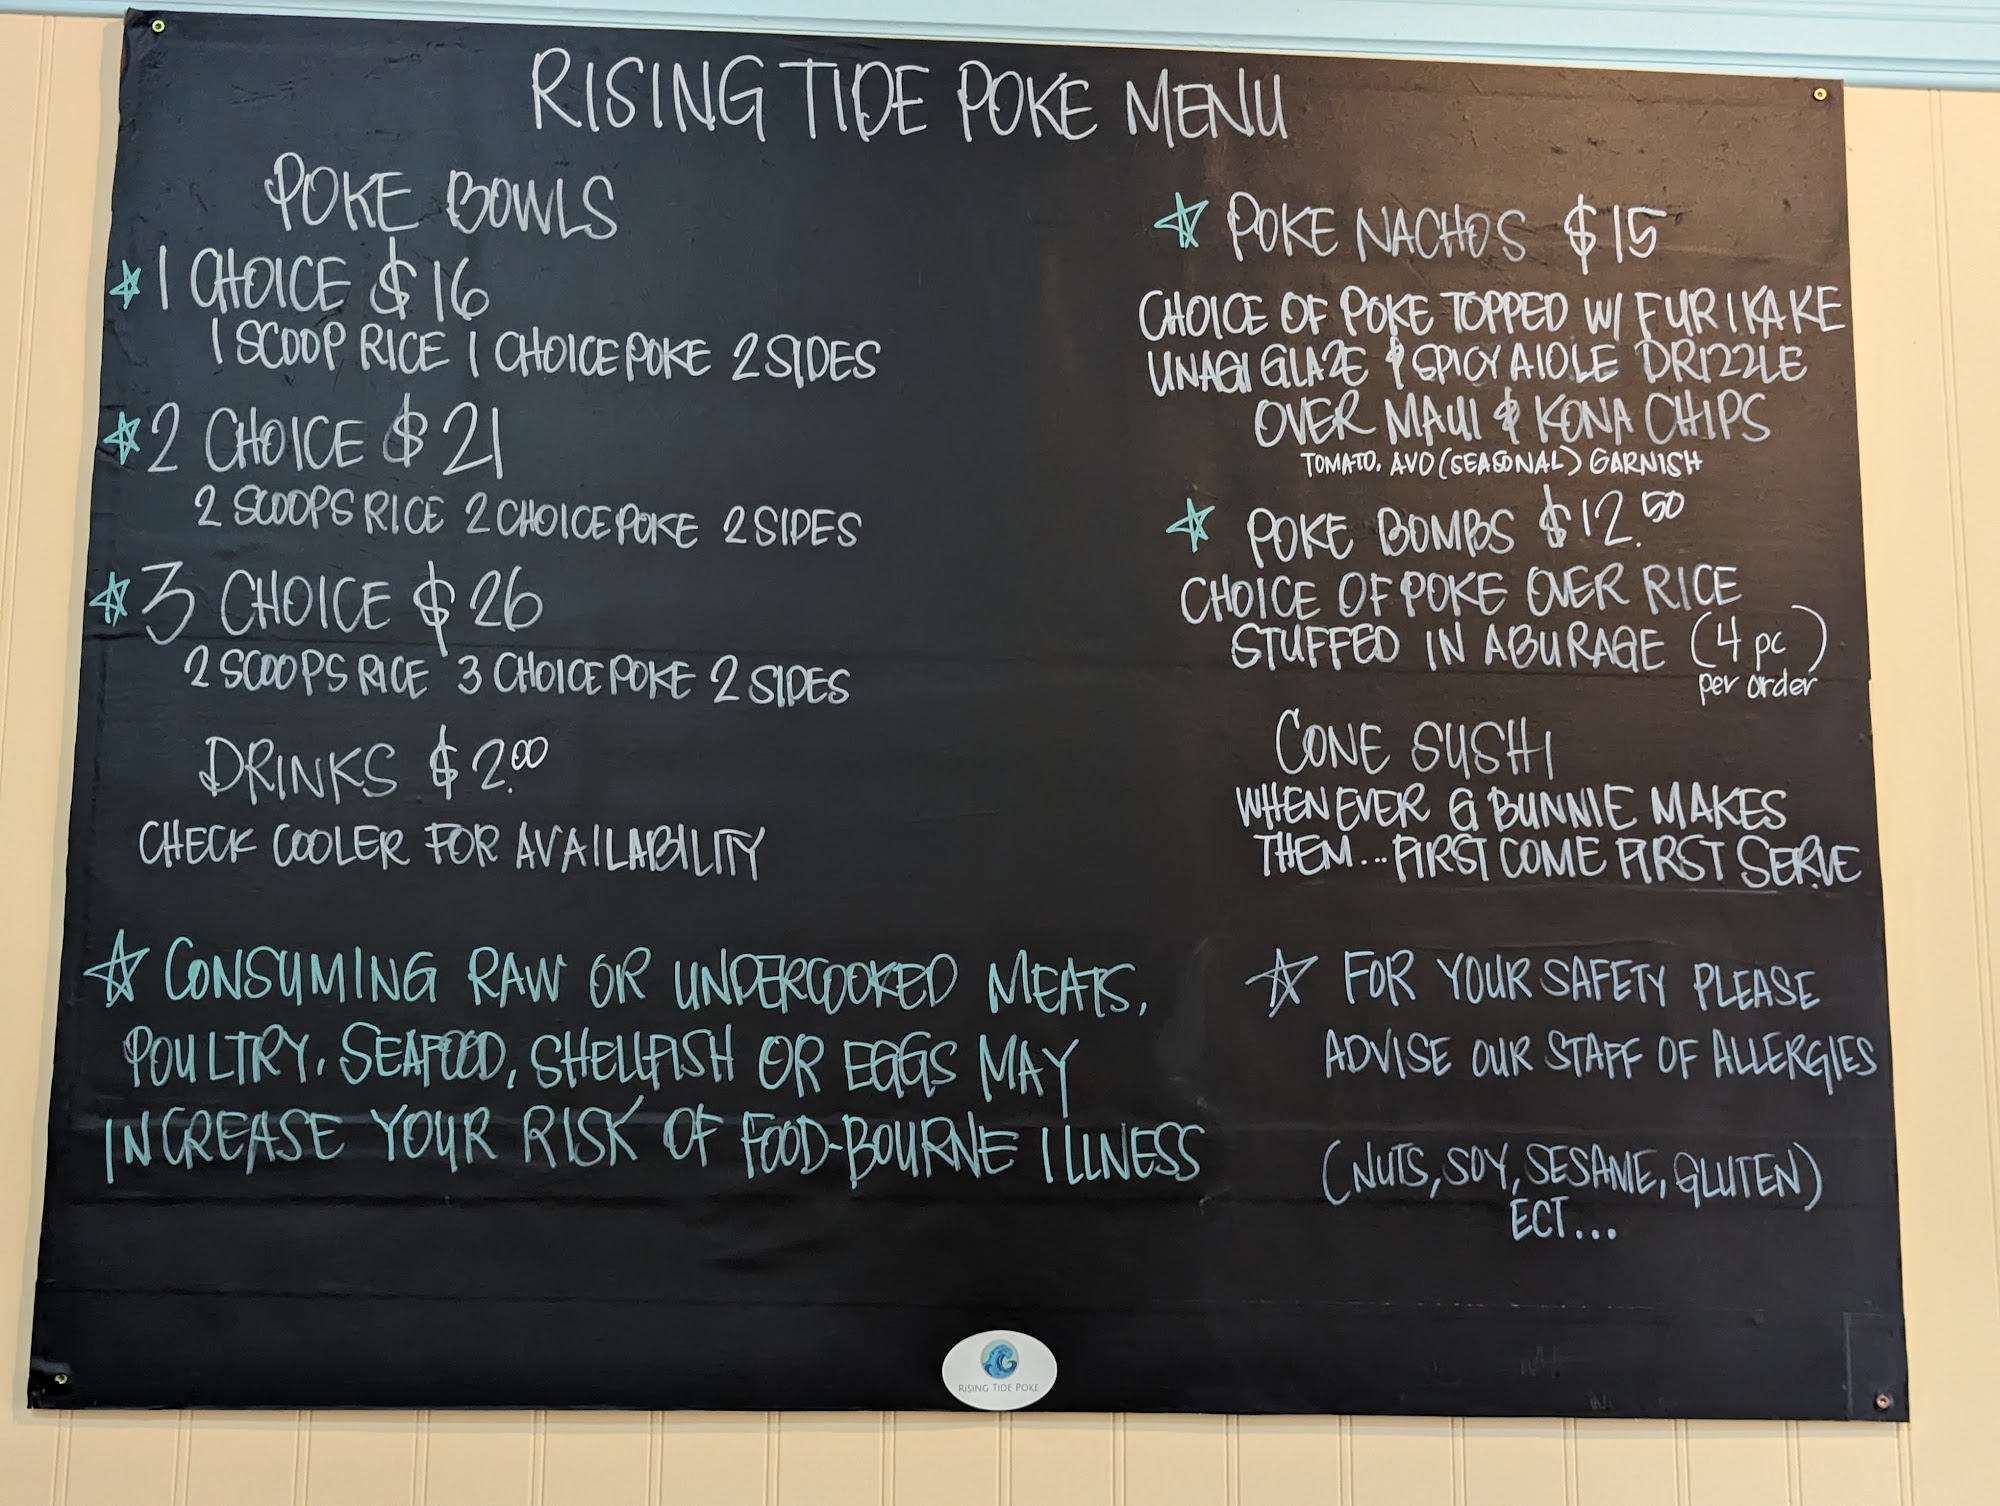 RISING TIDE POKE MENU
POKE BOWLS
☆ 1 CHOICE $16
1 SCOOP RICE 1 CHOICE POKE 2 SIDES
☆ 2 CHOICE $21
2 SCOOPS RICE 2 CHOICE POKE 2 SIDES
☆ 3 CHOICE $26
2 SCOOPS RICE 3 CHOICE POKE 2 SIDES
DRINKS $2.00
CHECK COOLER FOR AVAILABILITY
☆ CONSUMING RAW OR UNDERCOOKED MEATS,
POULTRY, SEAFOOD, SHELLFISH OR EGGS MAY
INCREASE YOUR RISK OF FOOD-BOURNE ILLNESS
☆ POKE NACHOS $15
CHOICE OF POKE TOPPED W/ FURIKAKE
UNAGI GLAZE & SPICY AIOLE DRIZZLE
OVER MAUI & KONA CHIPS
TOMATO, AVO (SEASONAL) GARNISH
☆ POKE BOMBS $12.50
CHOICE OF POKE OVER RICE
STUFFED IN ABURAGE (4 pc
per order)
CONE SUSHI
WHENEVER G BUNNIE MAKES
THEM... FIRST COME FIRST SERVE
☆ FOR YOUR SAFETY PLEASE
ADVISE OUR STAFF OF ALLERGIES
(NUTS, SOY, SESAME, GLUTEN)
ECT...
RISING TIDE POKE